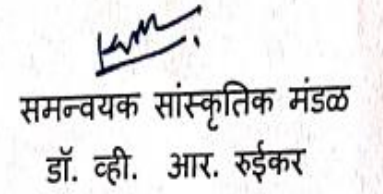 समन्वयक सांस्कृतिक मंडळ
डॉ. व्ही. आर. रुईकर